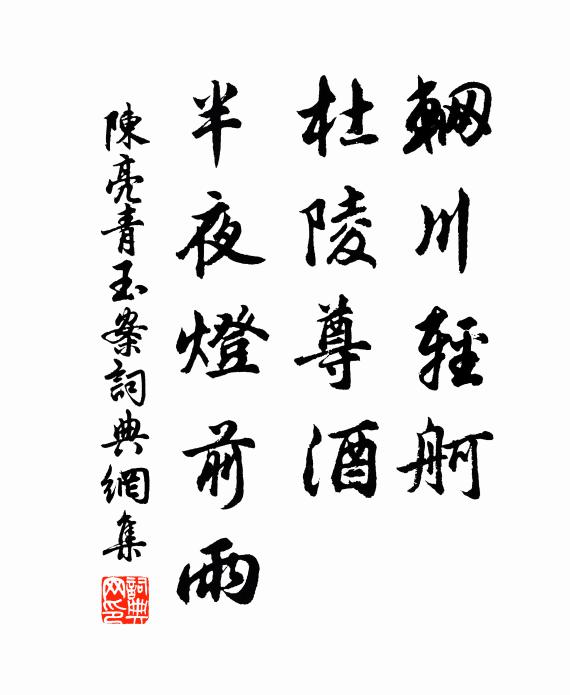 輞川輕舸
杜陵尊酒
半夜燈前雨
陳亮青玉案詞典網集
詞典網印